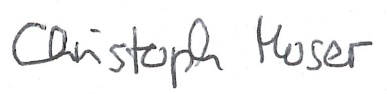 Christoph Moser